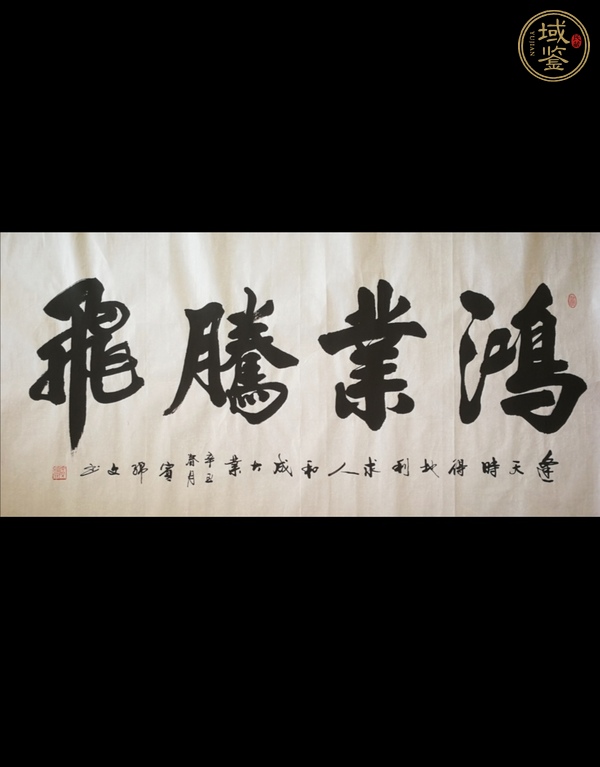 鴻業騰飛
逢天時得地利求人和成大業
辛丑
春月
域鉴
YUJIAN